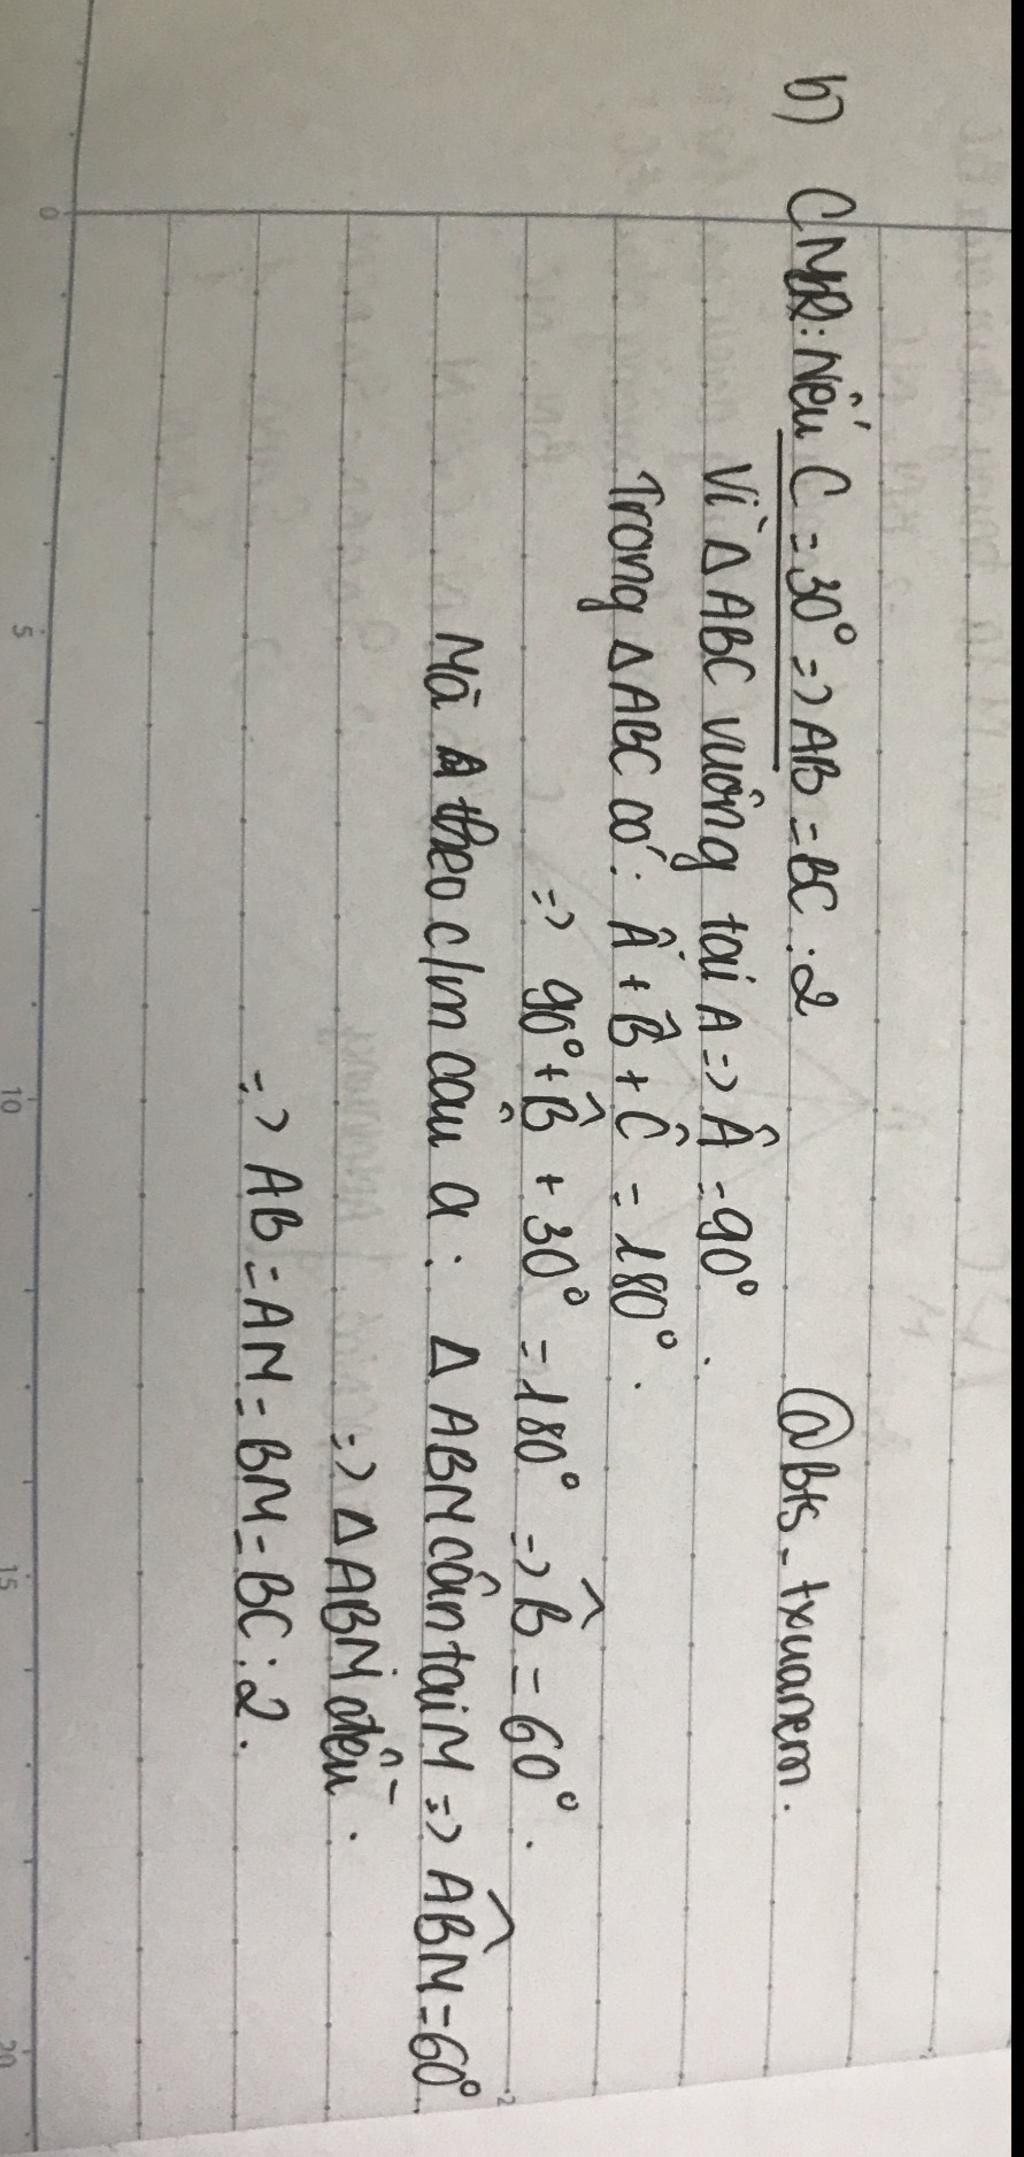 b) CMR: Nếu C = 30° => AB = BC : 2
@Bts_txuanem.
Vì Δ ABC vuông tại A => Â = 90°.
Trong Δ ABC có: Â + B̂ + Ĉ = 180°.
=> 90° + B̂ + 30° = 180° => B̂ = 60°.
Mà theo c/m câu a: Δ ABM cân tại M => ABM̂ = 60°
=> Δ ABM đều.
=> AB = AM = BM = BC : 2.
0
5
10
15
20